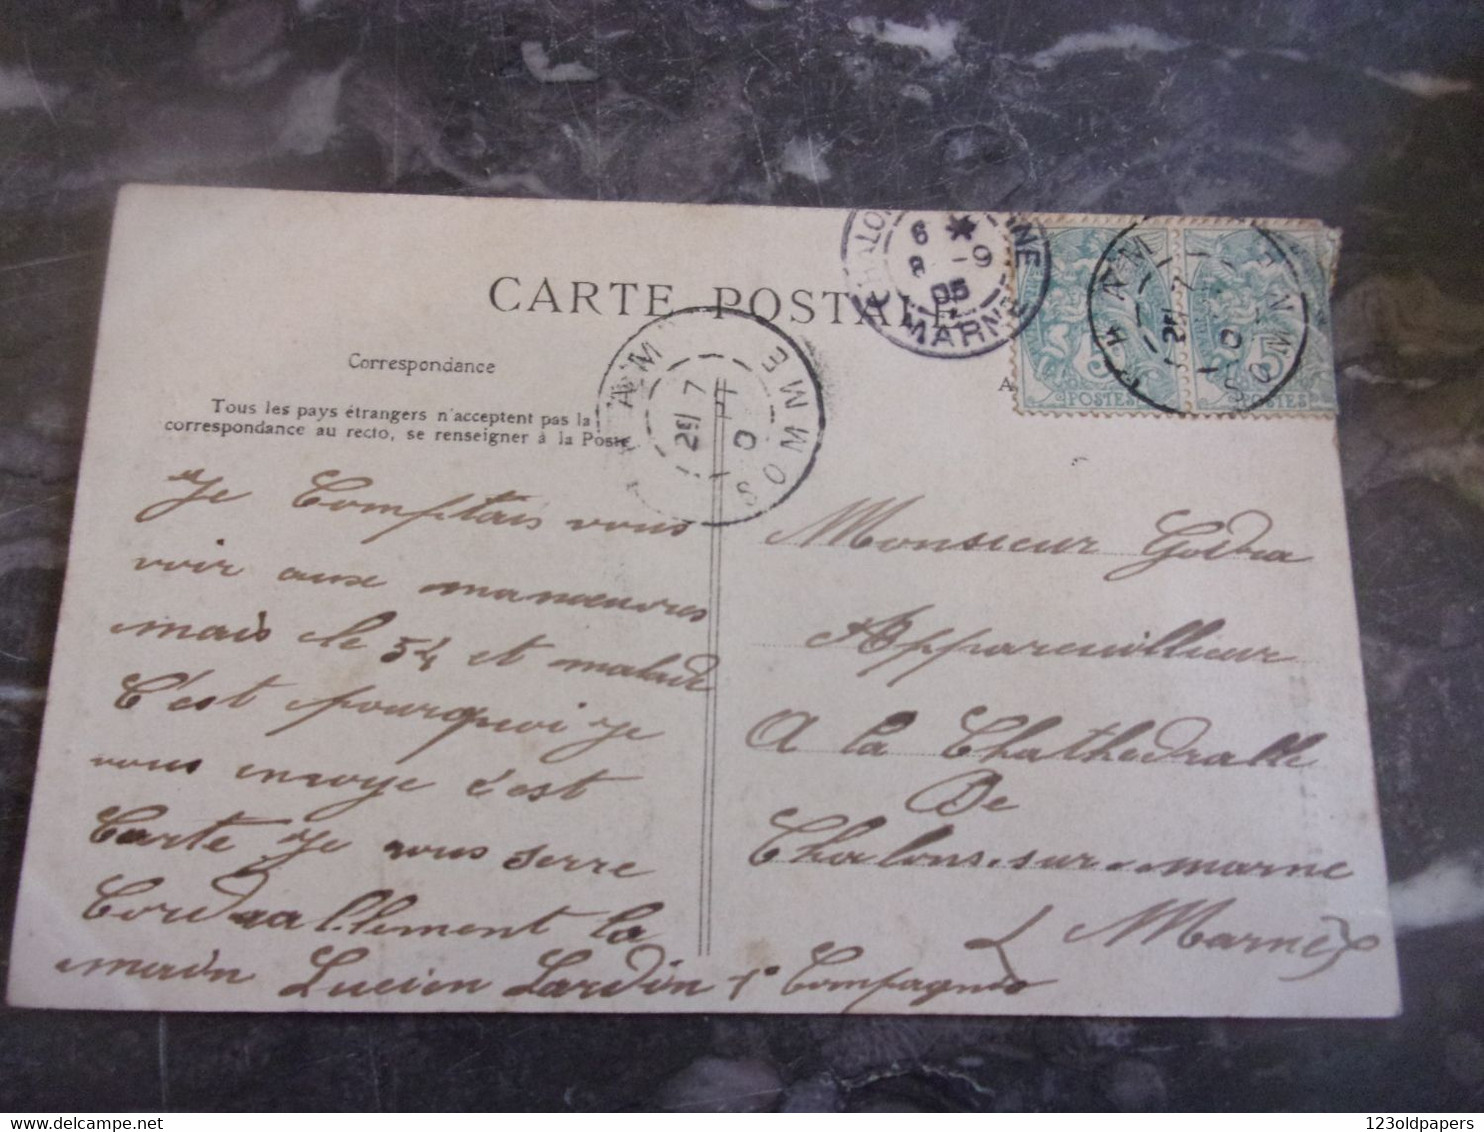 CARTE POSTALE
Correspondance
Tous les pays étrangers n'acceptent pas la
correspondance au recto, se renseigner à la Poste
Je Comptais vous
voir aux manoeuvres
mais le 54 et malade
C'est pourquoi je
vous envoye c'est
Carte Je vous serre
Cordiallement la
main Lucien Lardin 1° Compagnie
Monsieur Godra
Appareuillieur
A la Chathedralle
De
Chalons-sur-marne
(Marne)
6 *
8 -9
05
MARNE
7
25
SOMME
POSTES
5
POSTES
7
25
SOMME
123oldpapers